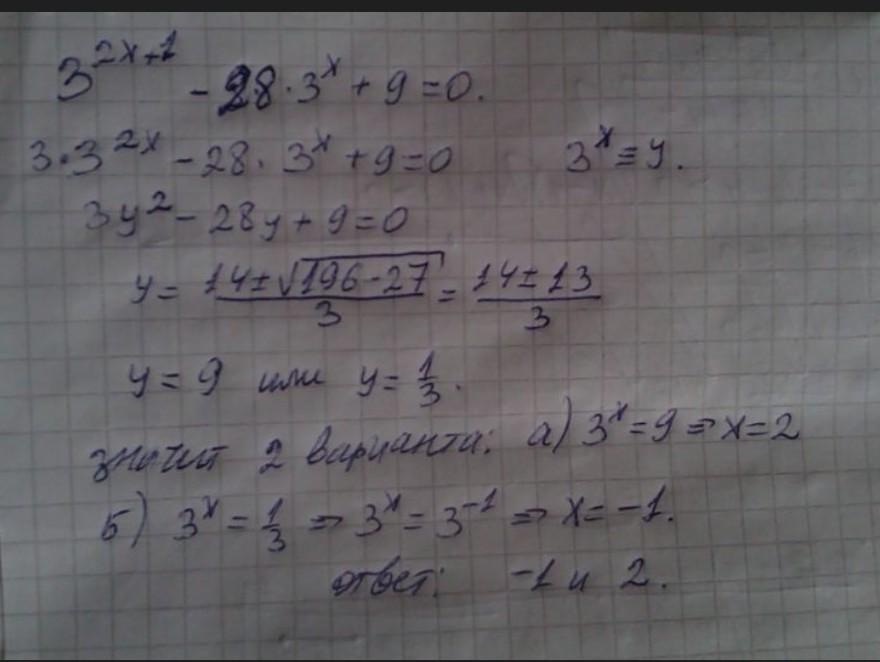 3^{2x+1} - 28 · 3^x + 9 = 0.
3 · 3^{2x} - 28 · 3^x + 9 = 0 3^x ≡ y.
3y² - 28y + 9 = 0
y = \frac{14 ± \sqrt{196 - 27}}{3} = \frac{14 ± 13}{3}
y = 9 или y = \frac{1}{3}.
значит 2 варианта: а) 3^x = 9 ⇒ x = 2
б) 3^x = \frac{1}{3} ⇒ 3^x = 3^{-1} ⇒ x = -1.
ответ: -1 и 2.